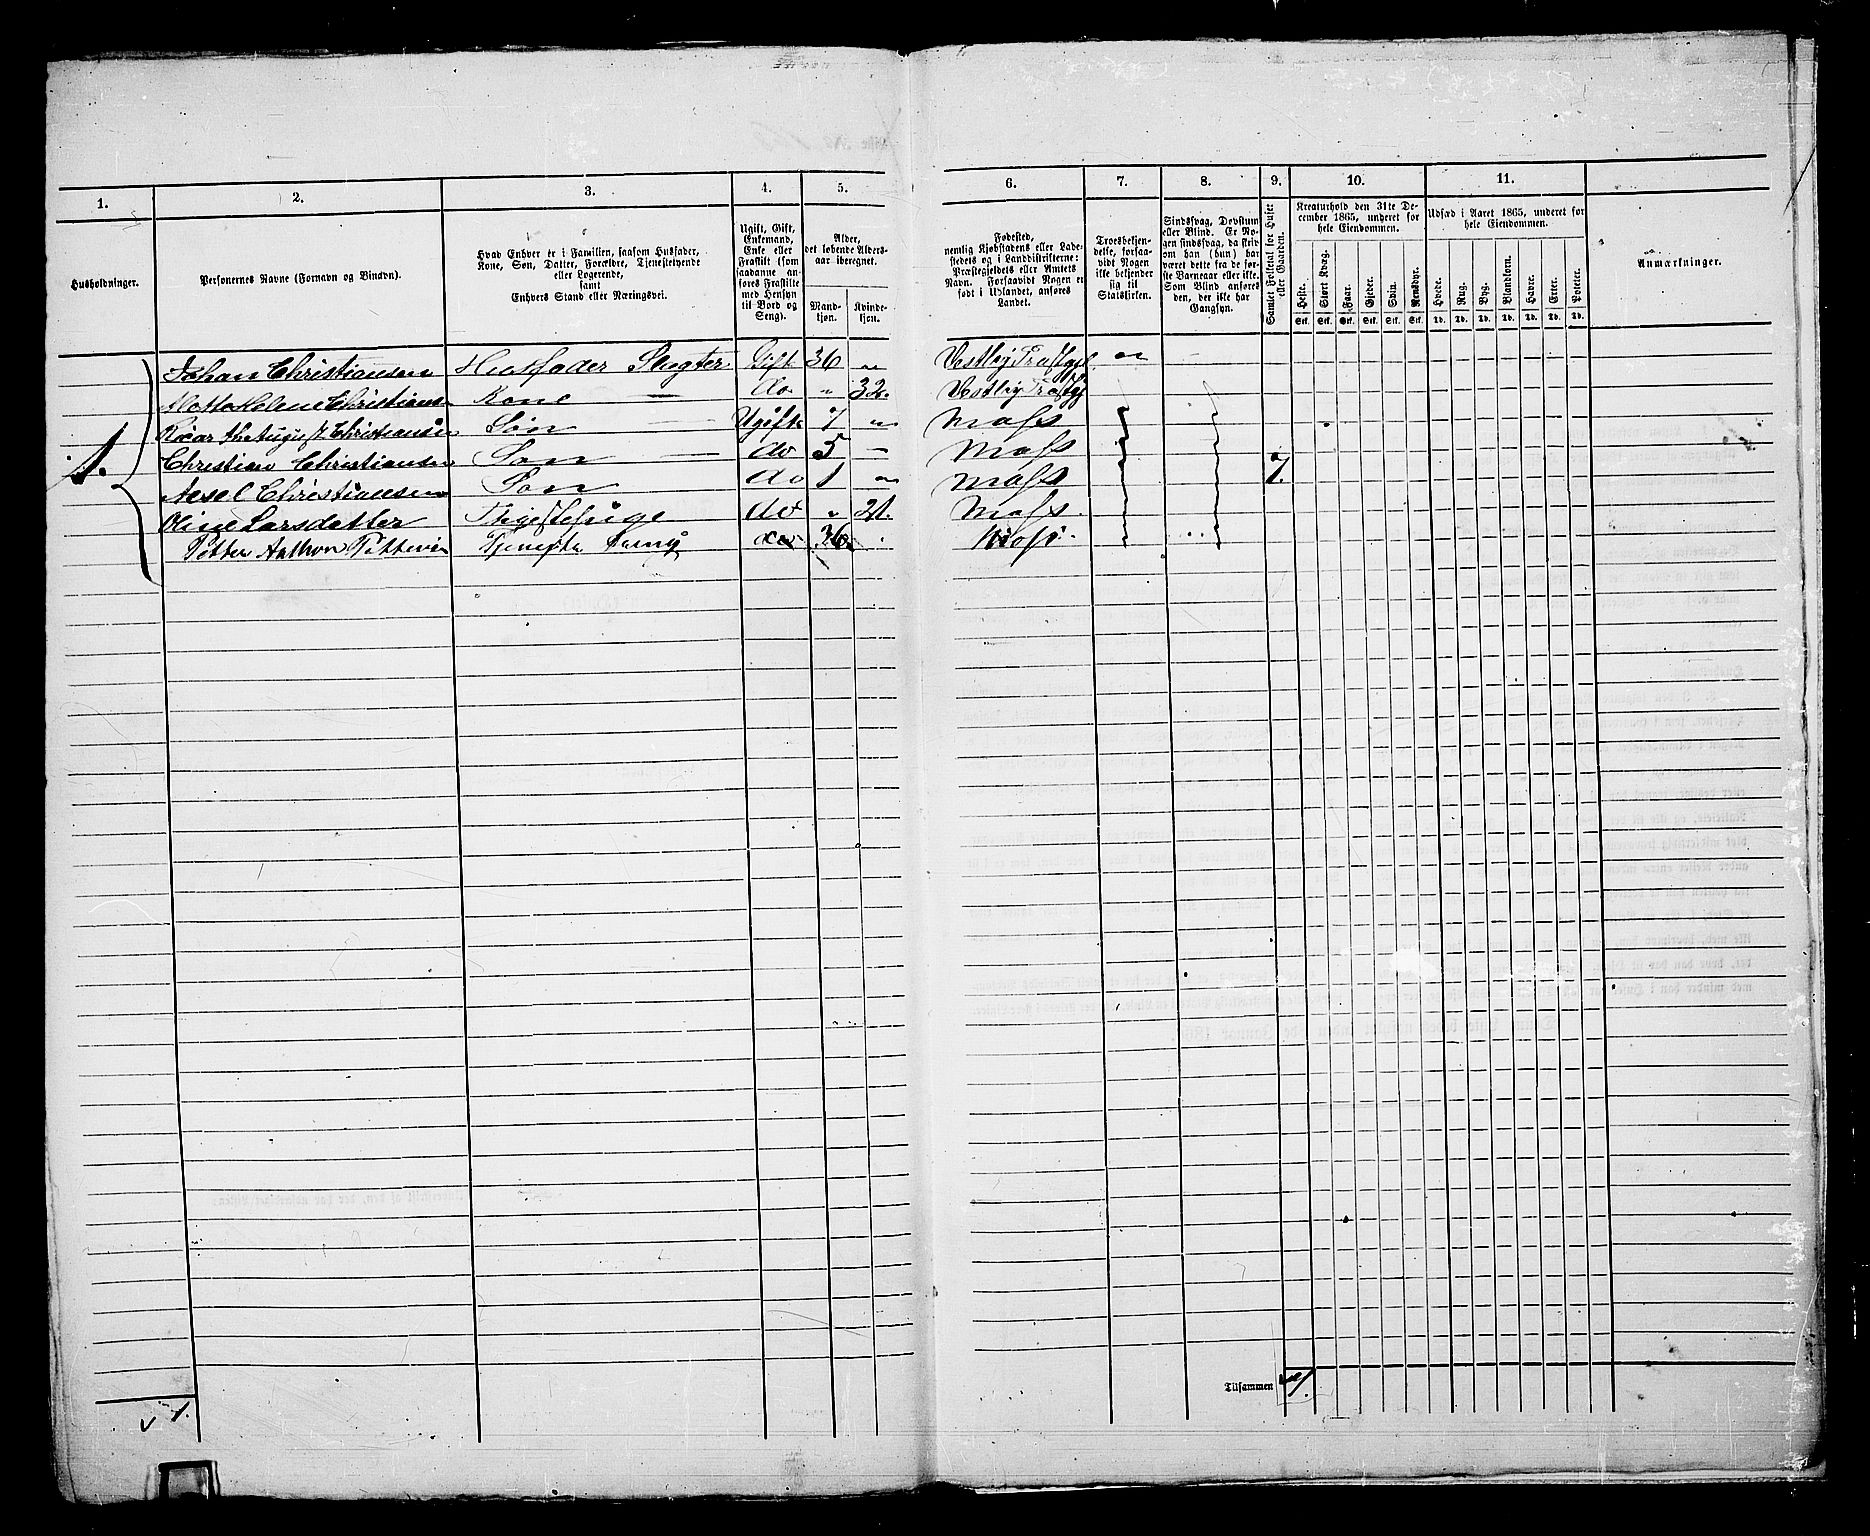 1.
2.
3.
4.
5.
6.
7.
8.
9.
10.
11.
Husholdninger.
Personernes Navne (Fornavn og Binavn).
Hvad Enhver er i Familien, saasom Husfader,
Kone, Søn, Datter, Forældre, Tjenestetyende
eller Logerende,
samt
Enhvers Stand eller Næringsvei.
Ugift, Gift,
Enkemand,
Enke eller
Fraskilt (som
saadanne an-
føres Fraskilte
med Hensyn
til Bord og
Seng).
Alder,
det løbende Alders-
aar iberegnet.
Mand-
kjøn.
Kvinde-
kjøn.
Fødested,
nemlig Kjøbstadens eller Lade-
stedets og i Landdistrikterne:
Præstegjeldets eller Amtets
Navn. Forsaavidt Nogen er
født i Udlandet, anføres
Landet.
Troesbekjen-
delse, forsaa-
vidt Nogen
ikke bekjender
sig til
Statskirken.
Sindssvag, Døvstum
eller Blind. Er No-
gen sindssvag, da skriv
om han (hun) har
været dette fra de før-
ste Barneaar eller ikke.
Som Blind anføres
den, der ikke har
Gangsyn.
Samlet Folketal for Huset
eller Gaarden.
Kreaturhold den 31te De-
cember 1865, underet for
hele Eiendommen.
Heste. Stort Kvæg. Faar. Gjeder. Svin. Rensdyr.
Stk. Stk. Stk. Stk. Stk. Stk.
Udsæd i Aaret 1865, underet for
hele Eiendommen.
Hvede. Rug. Byg. Blandkorn. Havre. Erter. Poteter.
Td. Td. Td. Td. Td. Td. Td.
Anmærkninger.
1.
Johan Christiansen Husfader Gift 36 " Vestby "
Helene Christians Kone — do " 32. Vestby
August Christiansen Søn — Ugift 7 " Moss
Christian Christiansen Søn — do 5 — Moss
Axsel Christiansen Søn do 1 " Moss 7.
Oline Larsdatter do " 21. Moss.
Petter Anthon do 36. Moss.
Tilsammen 7.
v 1.